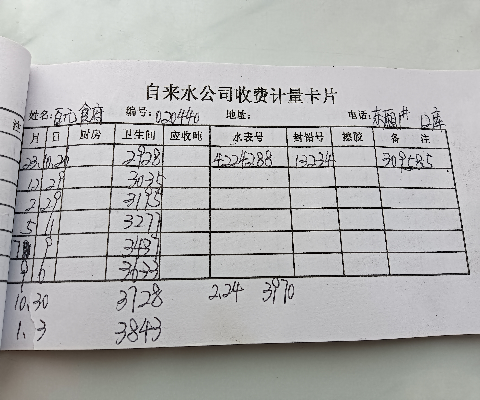 自来水公司收费计量卡片
姓名: 百元食府 编号: 020440 地址: 电话:
月 日 厨房 卫生间 应收吨 水表号 封铅号 橡胶 备注
23.10.20 2928 4224288 13234 309585
12 29 3035
2 29 3195
5 1
9 6
10.30 3728 2.24 3970
1.3 3843